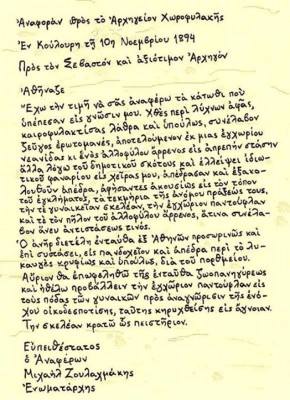 Ἀναφορὰν πρὸς τὸ Ἀρχηγεῖον Χωροφυλακῆς
Ἐν Κούλουρη τῇ 10ῃ Νοεμβρίου 1894
Πρὸς τὸν Σεβαστὸν καὶ ἀξιότιμον Ἀρχηγόν
Ἀθήναζε
"Ἔχω τὴν τιμὴ νὰ σᾶς ἀναφέρω τὰ κάτωθι ποὺ
ὑπέπεσαν εἰς γνῶσιν μου. Χθὲς περὶ λύχνων ἁφὰς,
καιροφυλακτίσας λάθρα καὶ ὑπούλως, συνέλαβον
ζεῦγος ἐρωτομανές, ἀποτελούμενον ἐκ μιας ἐγχωρίου
νεανίδας κι ἑνὸς ἀλλοφύλου ἄρρενος εἰς ἀπρεπῆν στάσιν
ἀλλὰ λόγω τοῦ δημοτικοῦ σκότους καὶ ἐλλείψει ἰδιω-
τικοῦ φαναρίου εἰς χείρας μου, ἀπέδρασαν καὶ ἐξακο-
λουθοῦν ἀπέδρα, ἀφήσαντες ἀκουσίως εἰς τὸν τόπον
τοῦ ἐγκλήματος, τὰ τεκμήρια τῆς ἀνόμου πράξεώς τους,
τὴν τε γυναικεῖαν σκελέαν, τὴν ἐγχώριον παντούφλαν
καὶ τὸ τὸν πῆλον τοῦ ἀλλοφύλου ἄρρενος, ἅτινα συνέλα-
βον ἄνευ ἀντιστάσεως τινός.
Ὁ ἀνὴρ διετέλη ἐνταῦθα ἐξ Ἀθηνῶν προσωρινῶς καὶ
ἐπὶ συστάσει, εἰς πανδοχεῖον καὶ ἀπέδρα περὶ τὸ λυ-
καυγὲς κρυφίως καὶ ὑπούλως, διὰ τοῦ πορθμείου.
Αὔριον θὰ ἐπωφεληθῶ τῆς ἐνταῦθα ζωοπανηγύρεως
καὶ ἤθελω προβάλλειν τὴν ἐγχώριον παντούφλαν εἰς
τοὺς πόδας τῶν γυναικῶν πρὸς ἀναγνώρισιν τῆς ἐνό-
χου οἰκοδεσποτίσης, ταύτης κηρυχθείσης εἰς ἄγνοιαν.
Τὴν σκελέαν κρατῶ ὡς πειστήριον.
Εὐπειθέστατος
ὁ Ἀναφέρων
Μιχαὴλ Ζουλαχμάκης
Ἐνωματάρχης